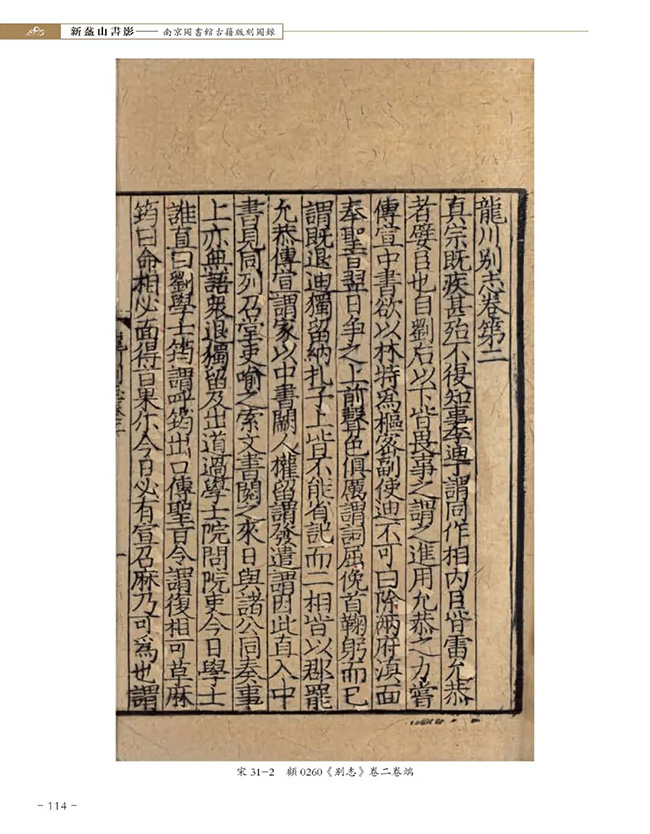 新盋山書影——南京圖書館古籍版刻圖錄
龍川別志卷第二
真宗既疾甚殆不復知事李迪丁謂同作相內臣雷允恭
者嬖臣也自劉后以下皆畏事之謂之進用允恭之力嘗
傳宣中書欲以林特爲樞密副使迪不可曰除兩府湏面
奉聖旨翌日争之上前聲色俱厲謂詞屈俛首鞠躬而已
謂既退迪獨留納扎子上皆不能省記而二相皆以郡罷
允恭傳宣謂家以中書闕人權留謂發遣謂因此直入中
書見同列召堂吏喻之索文書閱之來日與諸公同奏事
上亦無語衆退獨留及出道過學士院問院吏今日學士
誰直曰劉學士筠謂呼筠出口傳聖旨令謂復相可草麻
筠曰命相必面得旨果尒今日必有宣召麻乃可爲也謂
宋 31-2 顧 0260《別志》卷二卷端
- 114 -